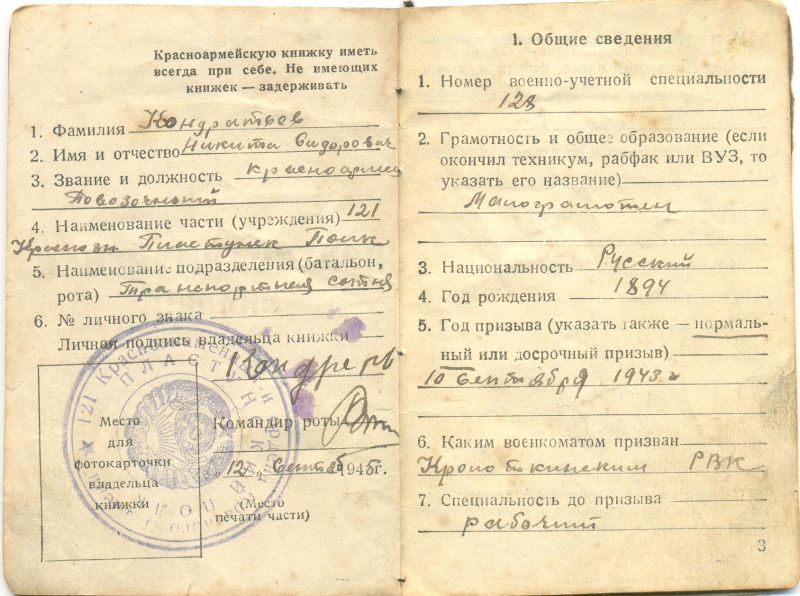 Красноармейскую книжку иметь
всегда при себе. Не имеющих
книжек — задерживать
1. Фамилия Кондратьев
2. Имя и отчество Никита Сидорович
3. Звание и должность красноармеец
Повозочный
4. Наименование части (учреждения) 121
Краснозн Пластунск Полк
5. Наименование подразделения (батальон,
рота) Транспортная сотня
6. № личного знака
Личная подпись владельца книжки
Место
для
фотокарточки
владельца
книжки
Командир роты
"12" Сентяб 1945г.
(Место
печати части)
121 Краснознамен
ПЛАСТУНСКИЙ ПОЛК
1. Общие сведения
1. Номер военно-учетной специальности
128
2. Грамотность и общее образование (если
окончил техникум, рабфак или ВУЗ, то
указать его название)
Малограмотен
3. Национальность Русский
4. Год рождения 1894
5. Год призыва (указать также — нормаль-
ный или досрочный призыв)
10 Сентября 1943 г
6. Каким военкоматом призван
Кропоткинским РВК
7. Специальность до призыва
рабочий
3